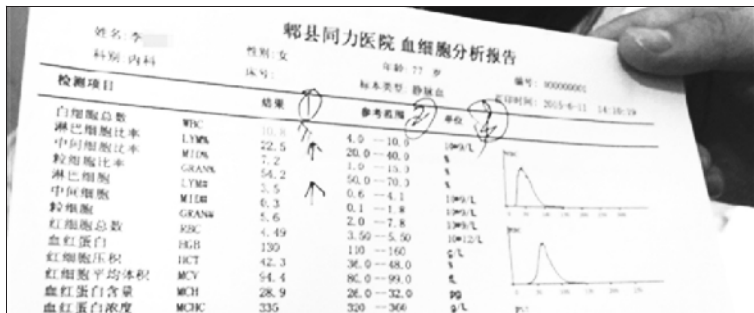 郫县同力医院 血细胞分析报告
姓名:李
性别:女
年龄:77 岁
编号: 000000001
科别:内科
床号:
标本类型:静脉血
打印时间: 2015-6-11 14:16:19
检测项目 结果 ① 参考范围 ② 单位
白细胞总数 WBC 10.8 4.0 --10.0 10^9/L
淋巴细胞比率 LYM% 22.5 ↑ 20.0 --40.0 %
中间细胞比率 MID% 7.2 1.0 --15.0 %
粒细胞比率 GRAN% 50.0 --70.0 %
淋巴细胞 LYM# ↑ 0.6 --4.1 10^9/L
中间细胞 MID# 0.3 0.1 --1.8 10^9/L
粒细胞 GRAN# 5.6 2.0 --7.8 10^9/L
红细胞总数 RBC 4.49 3.50 --5.50 10^12/L
血红蛋白 HGB 130 110 --160 g/L
红细胞压积 HCT 42.3 36.0 --48.0 %
红细胞平均体积 MCV 94.4 80.0 --99.0 fL
血红蛋白含量 MCH 28.9 26.0 --32.0 pg
血红蛋白浓度 MCHC 335 320 --360 g/L